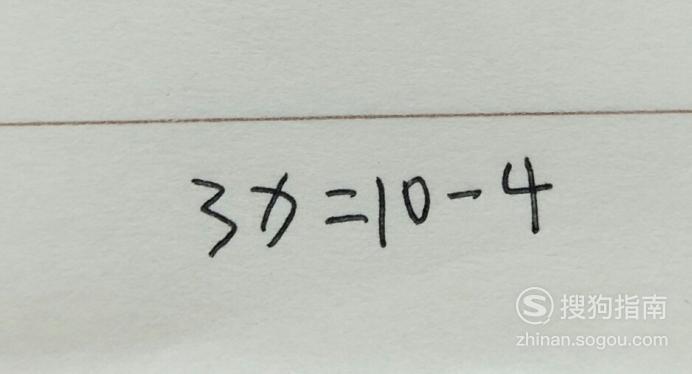 3x=10-4
搜狗指南
zhinan.sogou.com